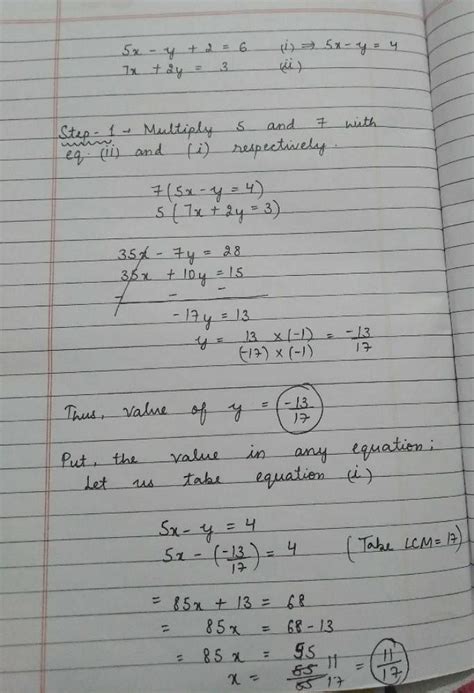 5x - y + 2 = 6 (i) ⇒ 5x - y = 4
7x + 2y = 3 (ii)
Step - 1 → Multiply 5 and 7 with
eq. (ii) and (i) respectively.
7(5x - y = 4)
5(7x + 2y = 3)
35x - 7y = 28
35x + 10y = 15
- - -
-17y = 13
y = 13 × (-1) / (-17) × (-1) = -13/17
Thus, value of y = -13/17
Put, the value in any equation;
Let us take equation (i)
5x - y = 4
5x - (-13/17) = 4 (Take LCM = 17)
= 85x + 13 = 68
= 85x = 68 - 13
= 85x = 55
x = 55/85 11/17 = 11/17